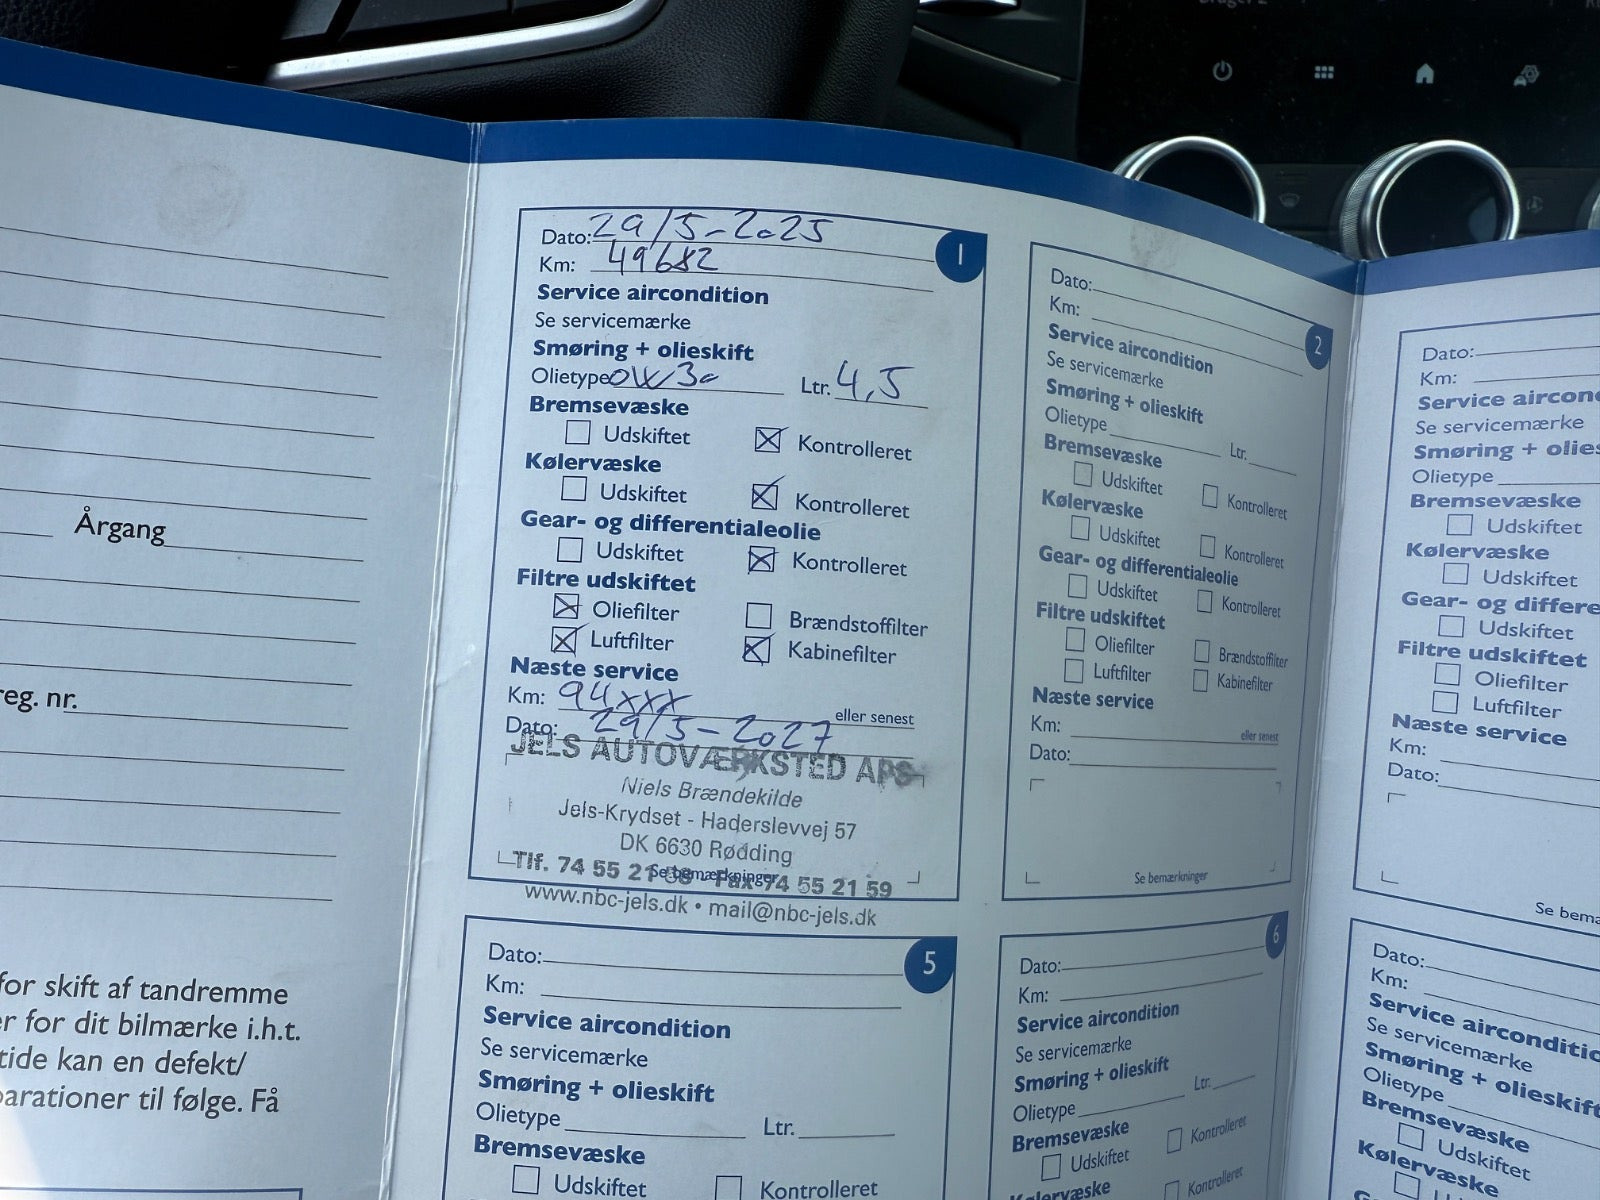 Årgang
reg. nr.
for skift af tandremme
er for dit bilmærke i.h.t.
tide kan en defekt/
parationer til følge. Få
1
Dato: 29/5-2025
Km: 49682
Service aircondition
Se servicemærke
Smøring + olieskift
Olietype 0W30 Ltr. 4,5
Bremsevæske
Udskiftet Kontrolleret
Kølervæske
Udskiftet Kontrolleret
Gear- og differentialeolie
Udskiftet Kontrolleret
Filtre udskiftet
Oliefilter Brændstoffilter
Luftfilter Kabinefilter
Næste service
Km: 94xxx eller senest
Dato: 29/5-2027
JELS AUTOVÆRKSTED APS
Niels Brændekilde
Jels-Krydset - Haderslevvej 57
DK 6630 Rødding
Tlf. 74 55 21 58 - Fax 74 55 21 59
Se bemærkninger
www.nbc-jels.dk • mail@nbc-jels.dk
2
Dato:
Km:
Service aircondition
Se servicemærke
Smøring + olieskift
Olietype Ltr.
Bremsevæske
Udskiftet Kontrolleret
Kølervæske
Udskiftet Kontrolleret
Gear- og differentialeolie
Udskiftet Kontrolleret
Filtre udskiftet
Oliefilter Brændstoffilter
Luftfilter Kabinefilter
Næste service
Km: eller senest
Dato:
Se bemærkninger
Dato:
Km:
Service aircon
Se servicemærke
Smøring + olies
Olietype
Bremsevæske
Udskiftet
Kølervæske
Udskiftet
Gear- og differe
Udskiftet
Filtre udskiftet
Oliefilter
Luftfilter
Næste service
Km:
Dato:
Se bema
5
Dato:
Km:
Service aircondition
Se servicemærke
Smøring + olieskift
Olietype Ltr.
Bremsevæske
Udskiftet Kontrolleret
6
Dato:
Km:
Service aircondition
Se servicemærke
Smøring + olieskift
Olietype Ltr.
Bremsevæske
Udskiftet Kontrolleret
Kølervæske
Kontrolleret
Dato:
Km:
Service airconditio
Se servicemærke
Smøring + olieskift
Olietype
Bremsevæske
Udskiftet
Kølervæske
Udskiftet